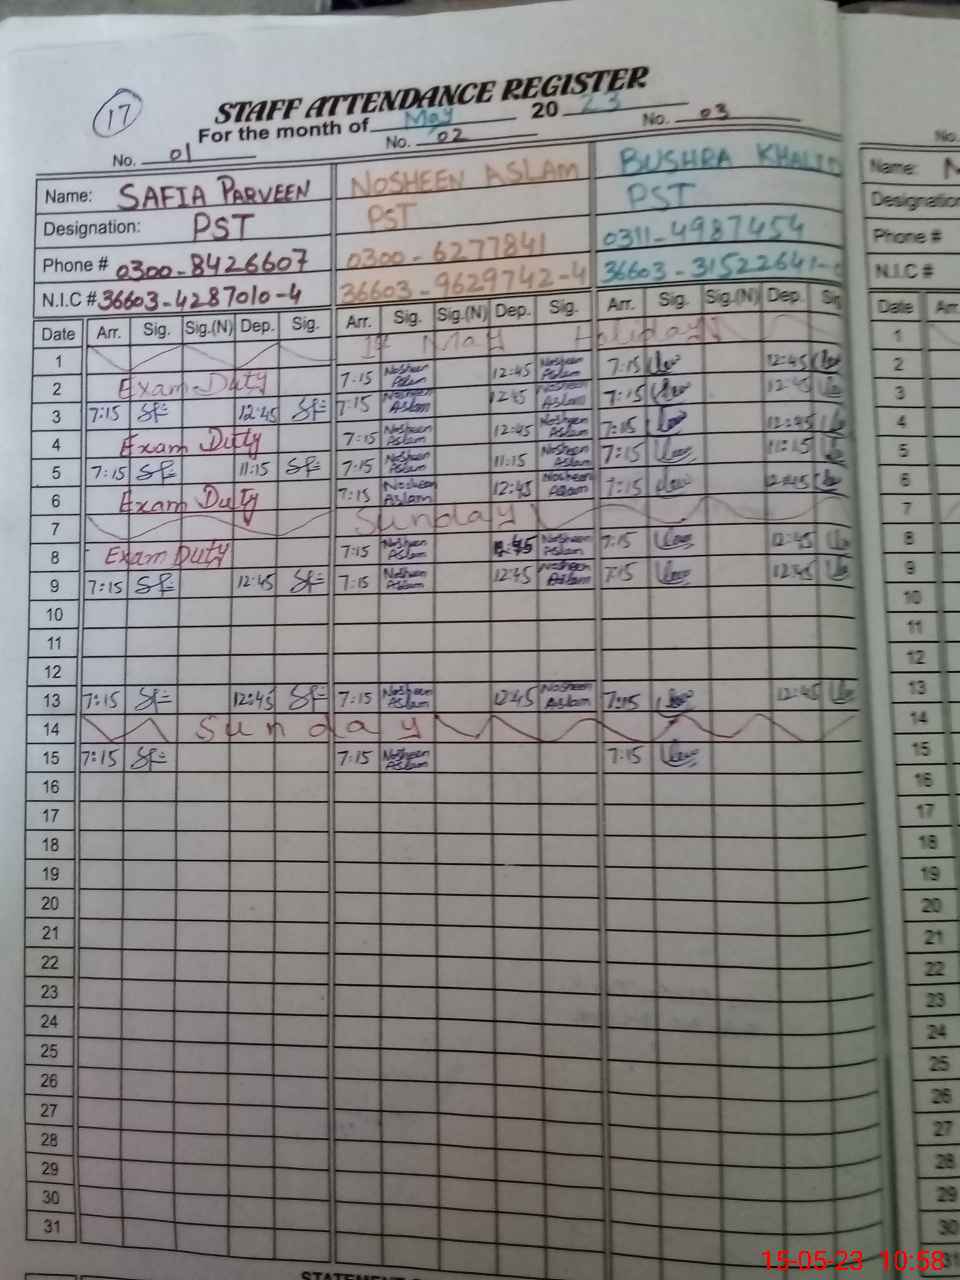 17
STAFF ATTENDANCE REGISTER
For the month of May 20 23
No. 01 No. 02 No. 03 No.
Name: SAFIA PARVEEN NOSHEEN ASLAM BUSHRA KHALID Name:
Designation: PST PST PST Designation
Phone # 0300-8426607 0300-6277841 0311-4987454 Phone #
N.I.C # 36603-4287010-4 36603-9629742-4 36603-31522641- N.I.C #
Date Arr. Sig. Sig.(N) Dep. Sig. Arr. Sig. Sig.(N) Dep. Sig. Arr. Sig. Sig.(N) Dep. Sig Date Arr.
1 1st May Holiday 1
2 Exam Duty 7:15 Nosheen Aslam 12:45 Nosheen Aslam 7:15 12:45 2
3 7:15 12:45 7:15 Nosheen Aslam 12:45 Nosheen Aslam 7:15 12:45 3
4 Exam Duty 7:15 Nosheen Aslam 12:45 Nosheen Aslam 7:15 12:45 4
5 7:15 11:15 7:15 Nosheen Aslam 11:15 Nosheen Aslam 7:15 11:15 5
6 Exam Duty 7:15 Nosheen Aslam 12:45 Nosheen Aslam 7:15 12:45 6
7 Sunday 7
8 Exam Duty 7:15 Nosheen Aslam 12:45 Nosheen Aslam 7:15 12:45 8
9 7:15 12:45 7:15 Nosheen Aslam 12:45 Nosheen Aslam 7:15 12:45 9
10 10
11 11
12 12
13 7:15 12:45 7:15 Nosheen Aslam 12:45 Nosheen Aslam 7:15 12:45 13
14 Sunday 14
15 7:15 7:15 Nosheen Aslam 7:15 15
16 16
17 17
18 18
19 19
20 20
21 21
22 22
23 23
24 24
25 25
26 26
27 27
28 28
29 29
30 30
31 31
STATEMENT
15-05-23 10:58